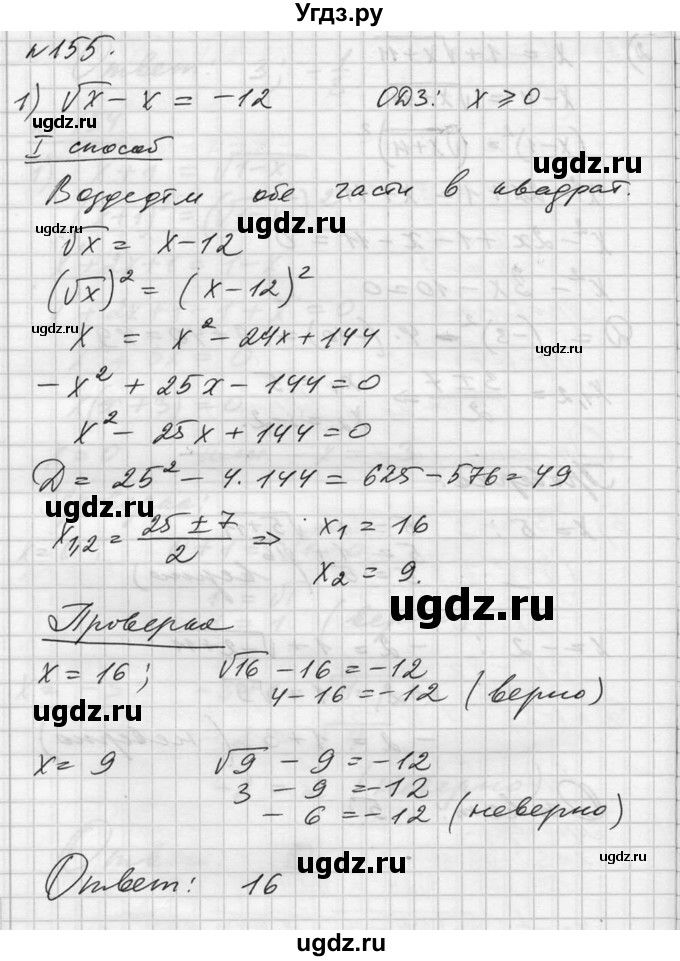 Угдз.ру
№155.
1) √x − x = −12     ОДЗ: x ⩾ 0
ugdz.ru
ugdz.ru
I способ
Возведём обе части в квадрат.
ugdz.ru
ugdz.ru
√x = x − 12
(√x)² = (x − 12)²
ugdz.ru
x = x² − 24x + 144
ugdz.ru
−x² + 25x − 144 = 0
x² − 25x + 144 = 0
D = 25² − 4·144 = 625 − 576 = 49
ugdz.ru
x₁,₂ = (25 ± 7)/2 ⇒ x₁ = 16
x₂ = 9.
ugdz.ru
Проверка
x = 16; √16 − 16 = −12
4 − 16 = −12 (верно)
ugdz.ru
x = 9 √9 − 9 = −12
3 − 9 = −12
− 6 = −12 (неверно)
ugdz.ru
ugdz.ru
Ответ: 16
ugdz.ru
ugdz.ru